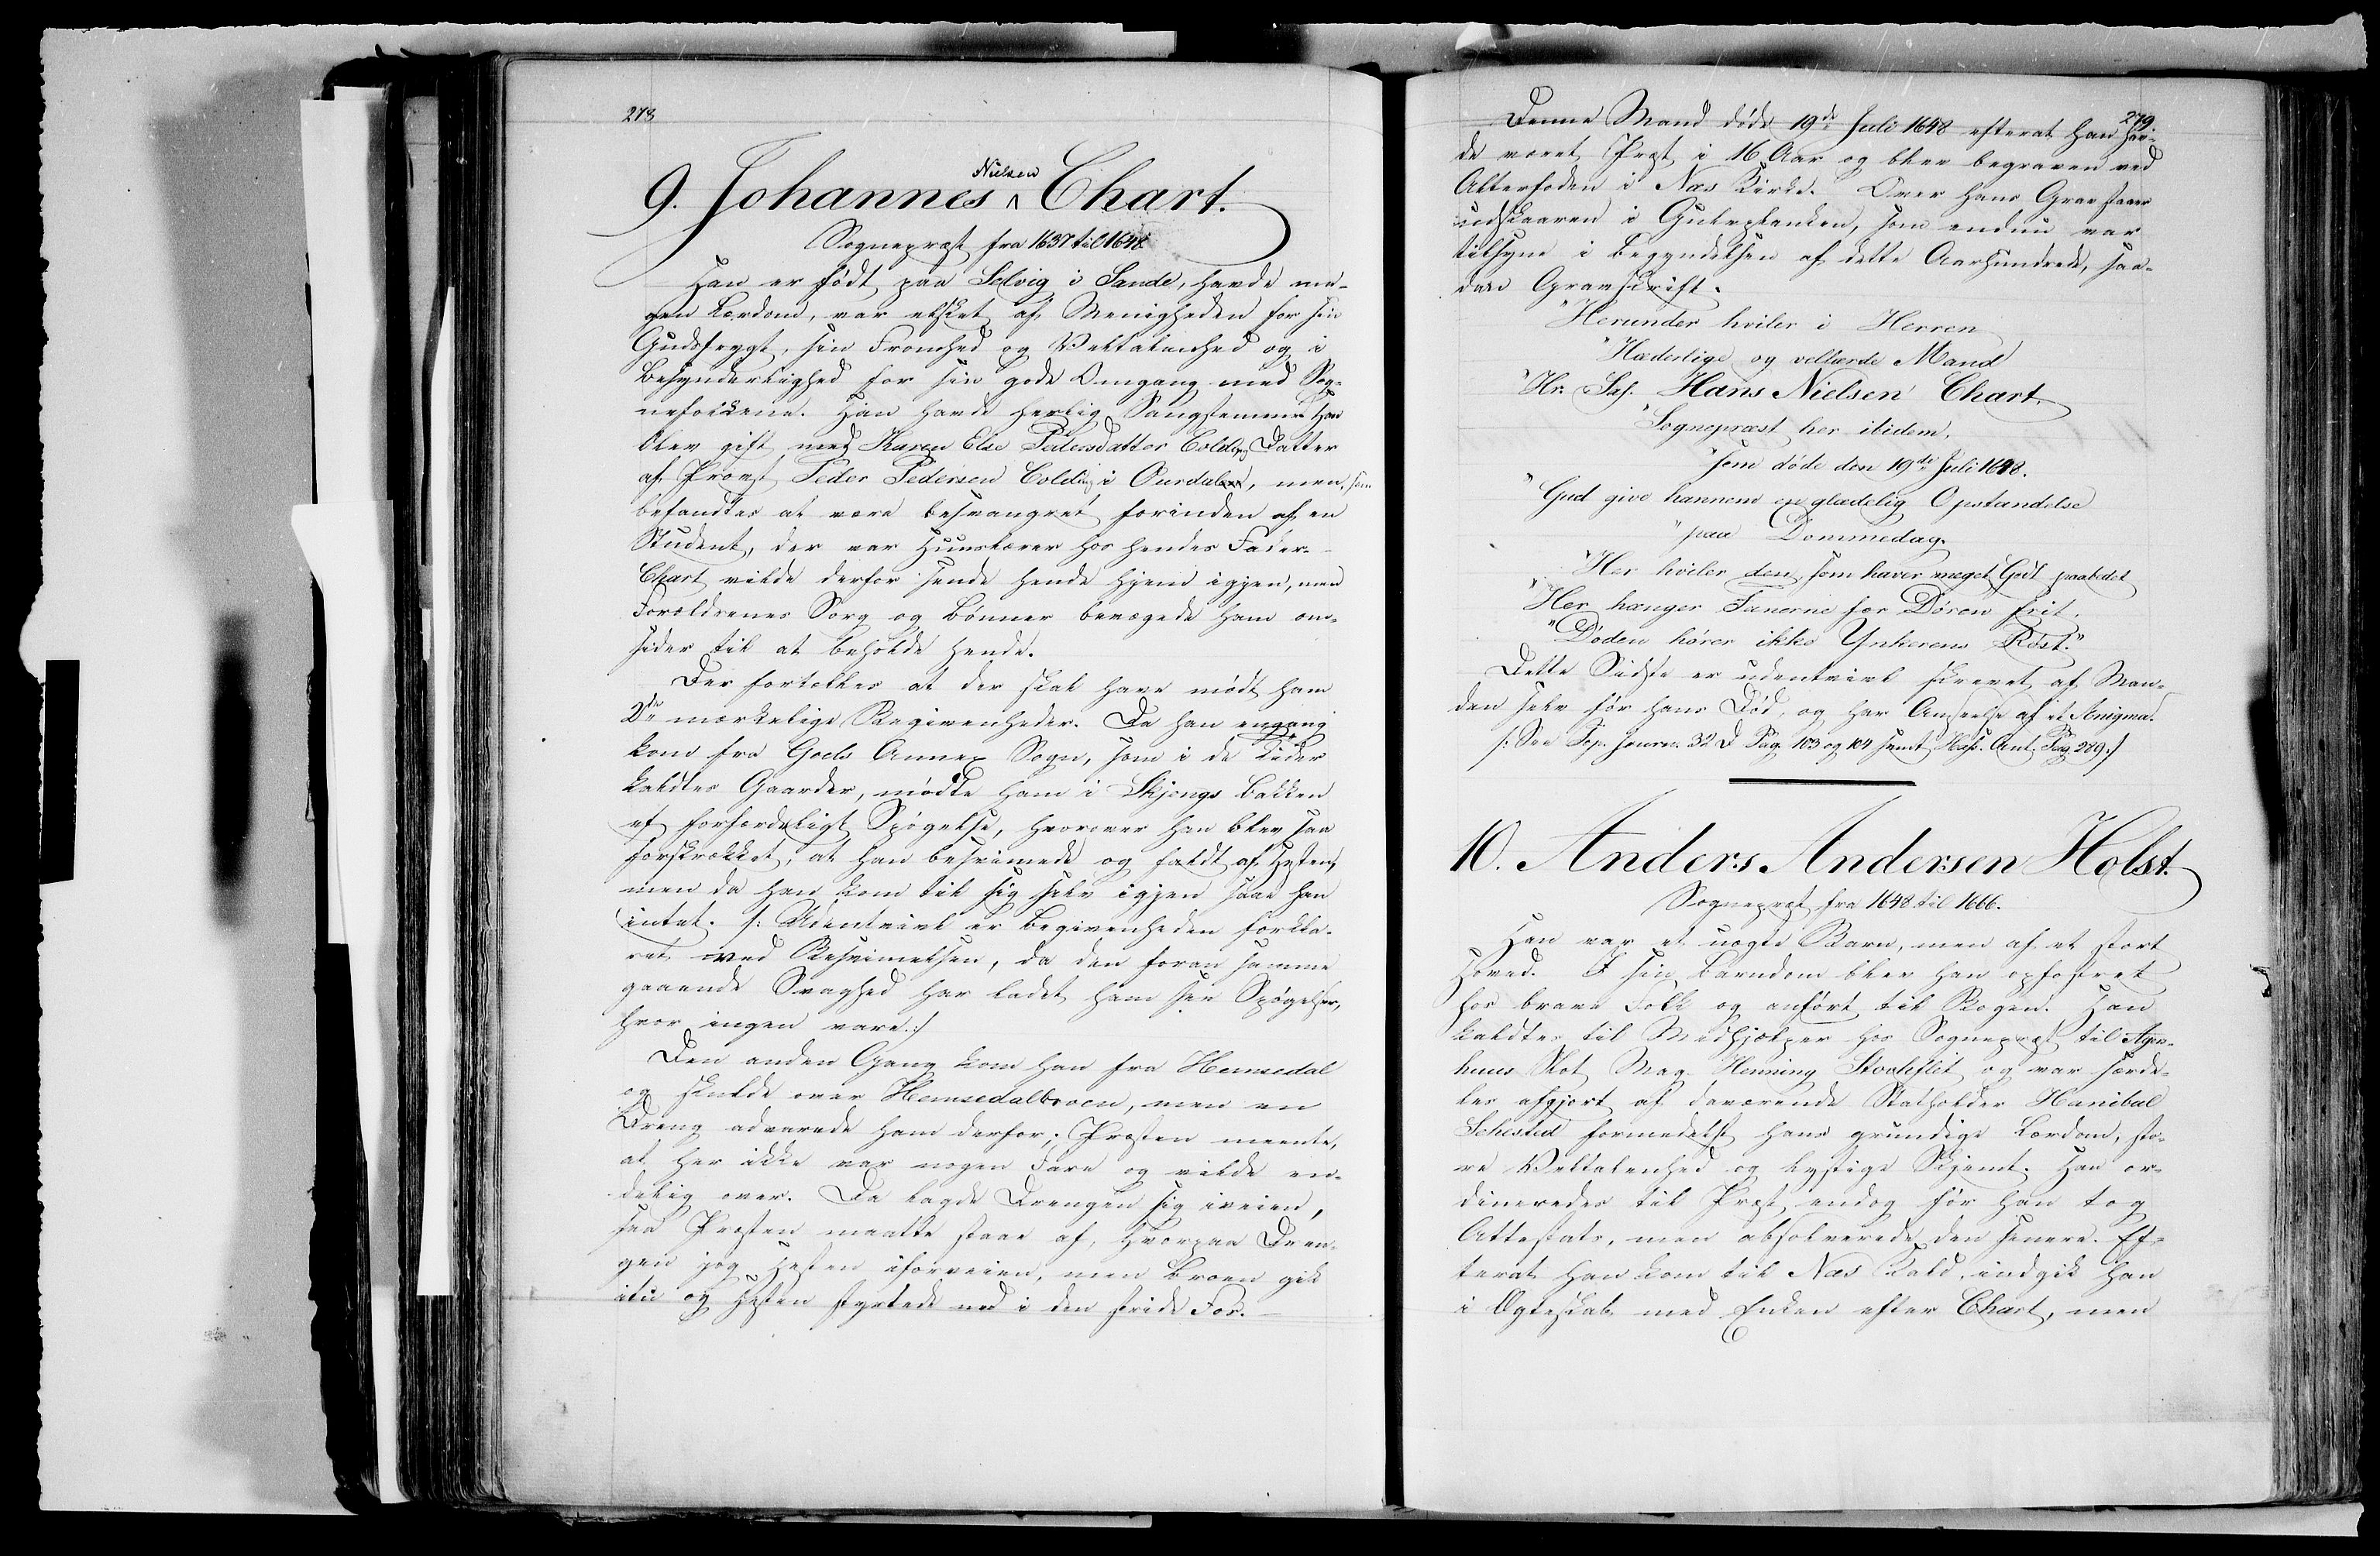 278
9. Johannes Nielsen Chart.
Sognepræst fra 1637 til 1648
Han er født paa Selvig i Sande, havde me-
gen Lærdom, var elsket af Menigheden for sin
Gudsfrygt, sin Fromhed og Veltalenhed og i
Besynderlighed for sin gode Omgang med Sog-
nefolkene. Han havde herlig Sangstemme. Han
blev gift med Karen Else Pedersdatter Colding Datter
af Provst Peder Pedersen Colding i Ourdal, men, som
befandtes at være besvangret forinden af en
Student, der var Huuslærer hos hendes Fader. -
Chart vilde derfor sende hende hjem igjen, men
Forældrenes Sorg og Bønner bevægede ham om-
sider til at beholde hende.
Der fortælles at der skal have mødt ham
2de mærkelige Begivenheder. Da han engang
kom fra Goels Annex Sogn, som i de Tider
kaldtes Gaarder, mødte ham i Skjengs Bakken
et forfærdeligt Spøgelse, hvorover han blev saa
forskrækket, at han besvimede og faldt af Hesten,
men da han kom til sig selv igjen saae han
intet. /: Udentvivl er Begivenheden forkla-
ret ved Besvimelsen, da den foran samme
gaaende Svaghed har ladet ham see Spøgelser,
hvor ingen vare. :/
Den anden Gang kom han fra Hemsedal
og skulde over Hemsedalbroen, men en
Dreng advarede ham derfor; Præsten meente,
at her ikke var nogen Fare og vilde en-
delig over. Da lagde Drengen sig iveien,
saa Præsten maatte staae af, hvorpaa Dren-
gen jog Hesten iforveien, men Broen gik
itu og Hesten styrtede ned i den stride Fos. -
279
Denne Mand døde 19de Juli 1648 efterat han hav-
de været Præst i 16 Aar og blev begraven ved
Alterfoden i Næs Kirke. Over hans Grav staaer
udskaaren i Gulvplanken, som endnu var
tilsyne i Begyndelsen af dette Aarhundrede, saa-
dan Gravskrift.
"Herunder hviler i Herren
"Hæderlige og vellærde Mand
"Hr. Sal. Hans Nielsen Chart.
"Sognepræst her ibidem,
"som døde den 19de Juli 1648.
"Gud give hannem en glædelig Opstandelse
"paa Dommedag.
"Her hviler den, som haver meget Godt paabedet
"Her hænger Tanerne for Døren frit.
"Døden hører ikke Ynkerens Røst."
Dette Sidste er udentvivl skrevet af Man-
den selv før hans Død, og har Anseelse af et Ænigma.
/: See Top. Journ. 32 D Pag. 103 og 104 samt Hist. Ant. Pag. 289 :/
10. Anders Andersen Holst.
Sognepræst fra 1648 til 1666.
Han var et uægte Barn, men af et stort
Hoved. I sin Barndom blev han opfostret
hos brave Folk og anført til Bogen. Han
kaldtes til Medhjælper hos Sognepræst til Agers-
huus Slot Mag. Henning Stockflet og var særde-
les afgjort af daværende Statholder Hanibal
Sehested formedelst hans grundige Lærdom, sto-
re Veltalenhed og lystige Skjemt. Han or-
dineredes til Præst, endog før han tog
Attestats, men absolverede den senere. Ef-
terat han kom til Næs Kald, indgik han
i Ægteskab med Enken efter Chart, men